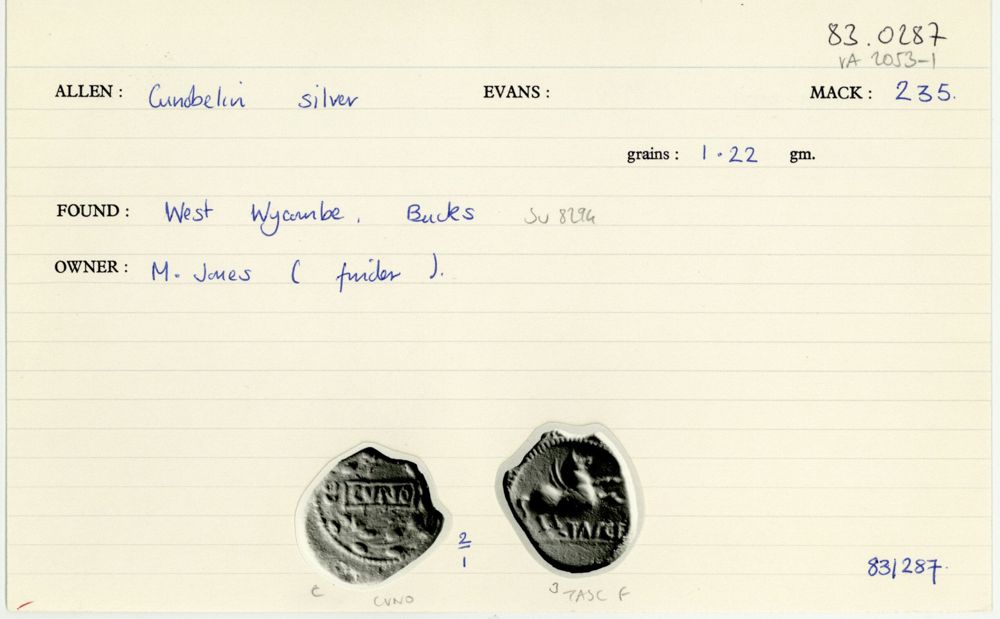 83.0287
VA 2053-1
ALLEN : Cunobelin silver EVANS : MACK : 235.
grains : 1.22 gm.
FOUND : West Wycombe, Bucks SU 8294
OWNER : M. Jones ( finder ).
CVNO
TASC F
2
1
C CVNO
3 TASC F
83/287.